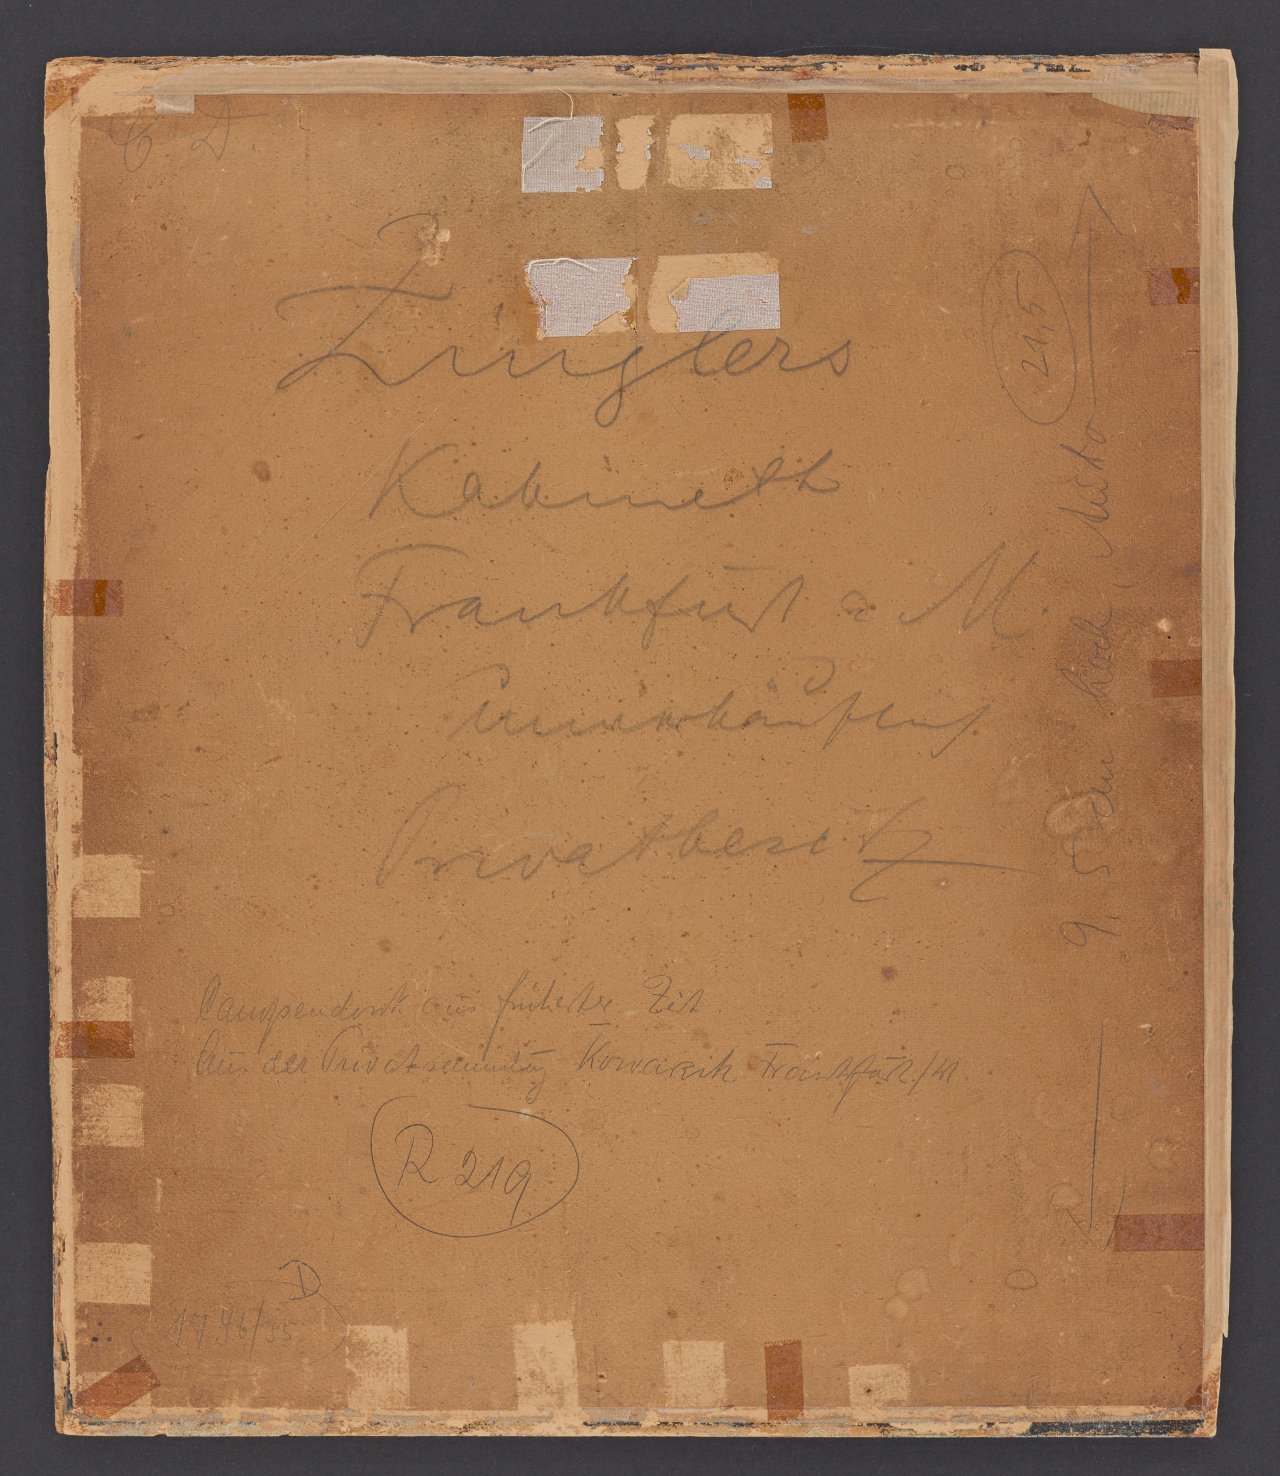 C D
Zinglers
Kabinett
Frankfurt a M.
Unverkäuflich
Privatbesitz
Campendonk aus frühester Zeit
Aus der Privatsammlung Kowarzik Frankfurt/M
R 219
D
1746/35
215
9,5 cm hoch,